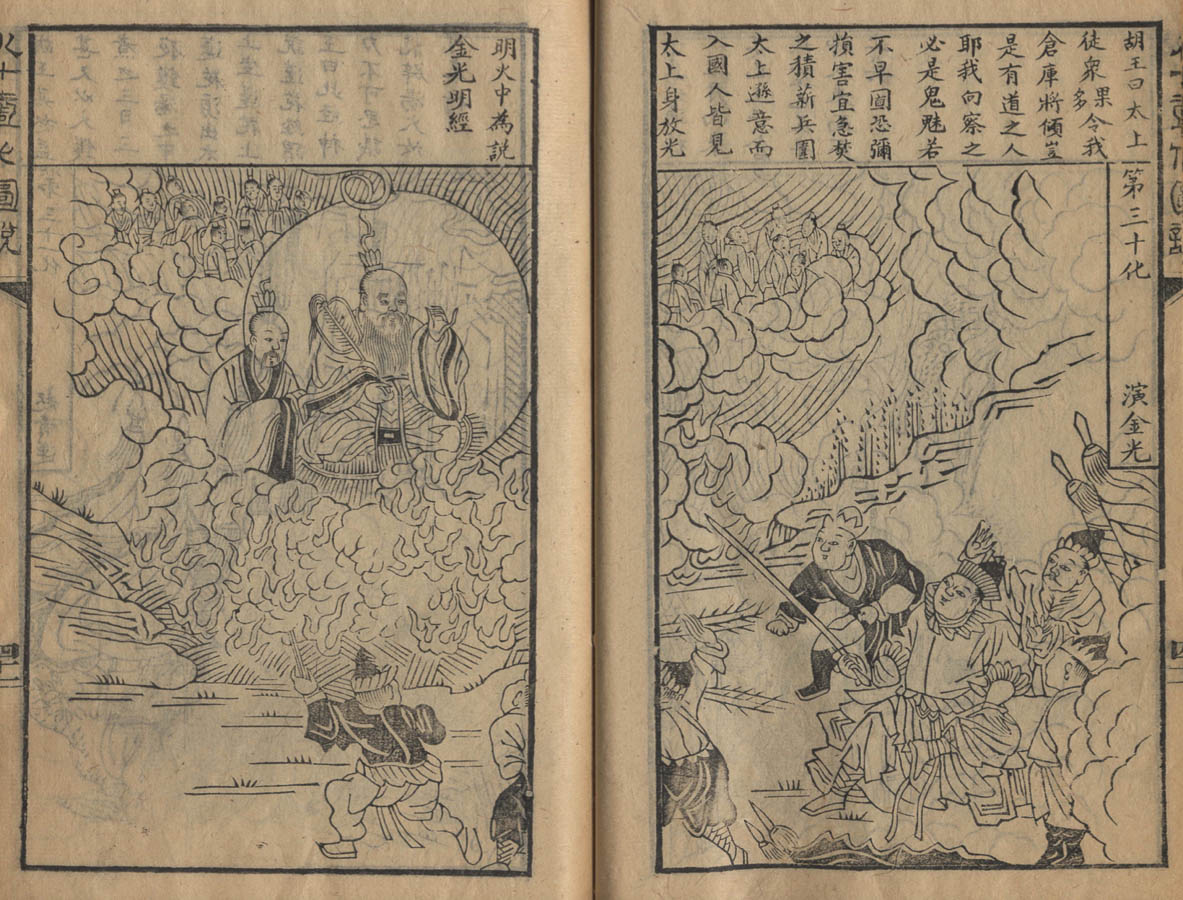 第三十化
演金光
胡王曰太上
徒衆果多令我
倉庫將傾豈
是有道之人
耶我向察之
必是鬼魅若
不早圖恐彌
損害宜急焚
之積薪兵圍
太上遜意而
入國人皆見
太上身放光
明火中為說
金光明經
化圖說